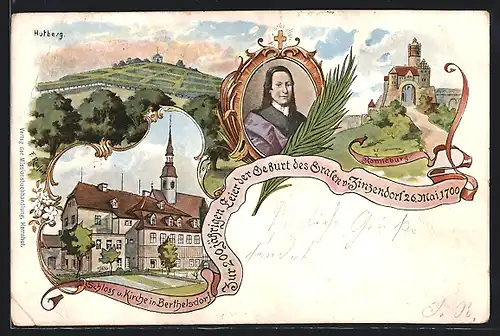 Hutberg.
Ronneburg
Zur 200jährigen Feier der Geburt des Grafen v. Zinzendorf 26. Mai 1700
Schloss u. Kirche in Berthelsdorf
Verlag der Missionsbuchhandlung, Herrnhut.
Herzlich Grüße
sendet